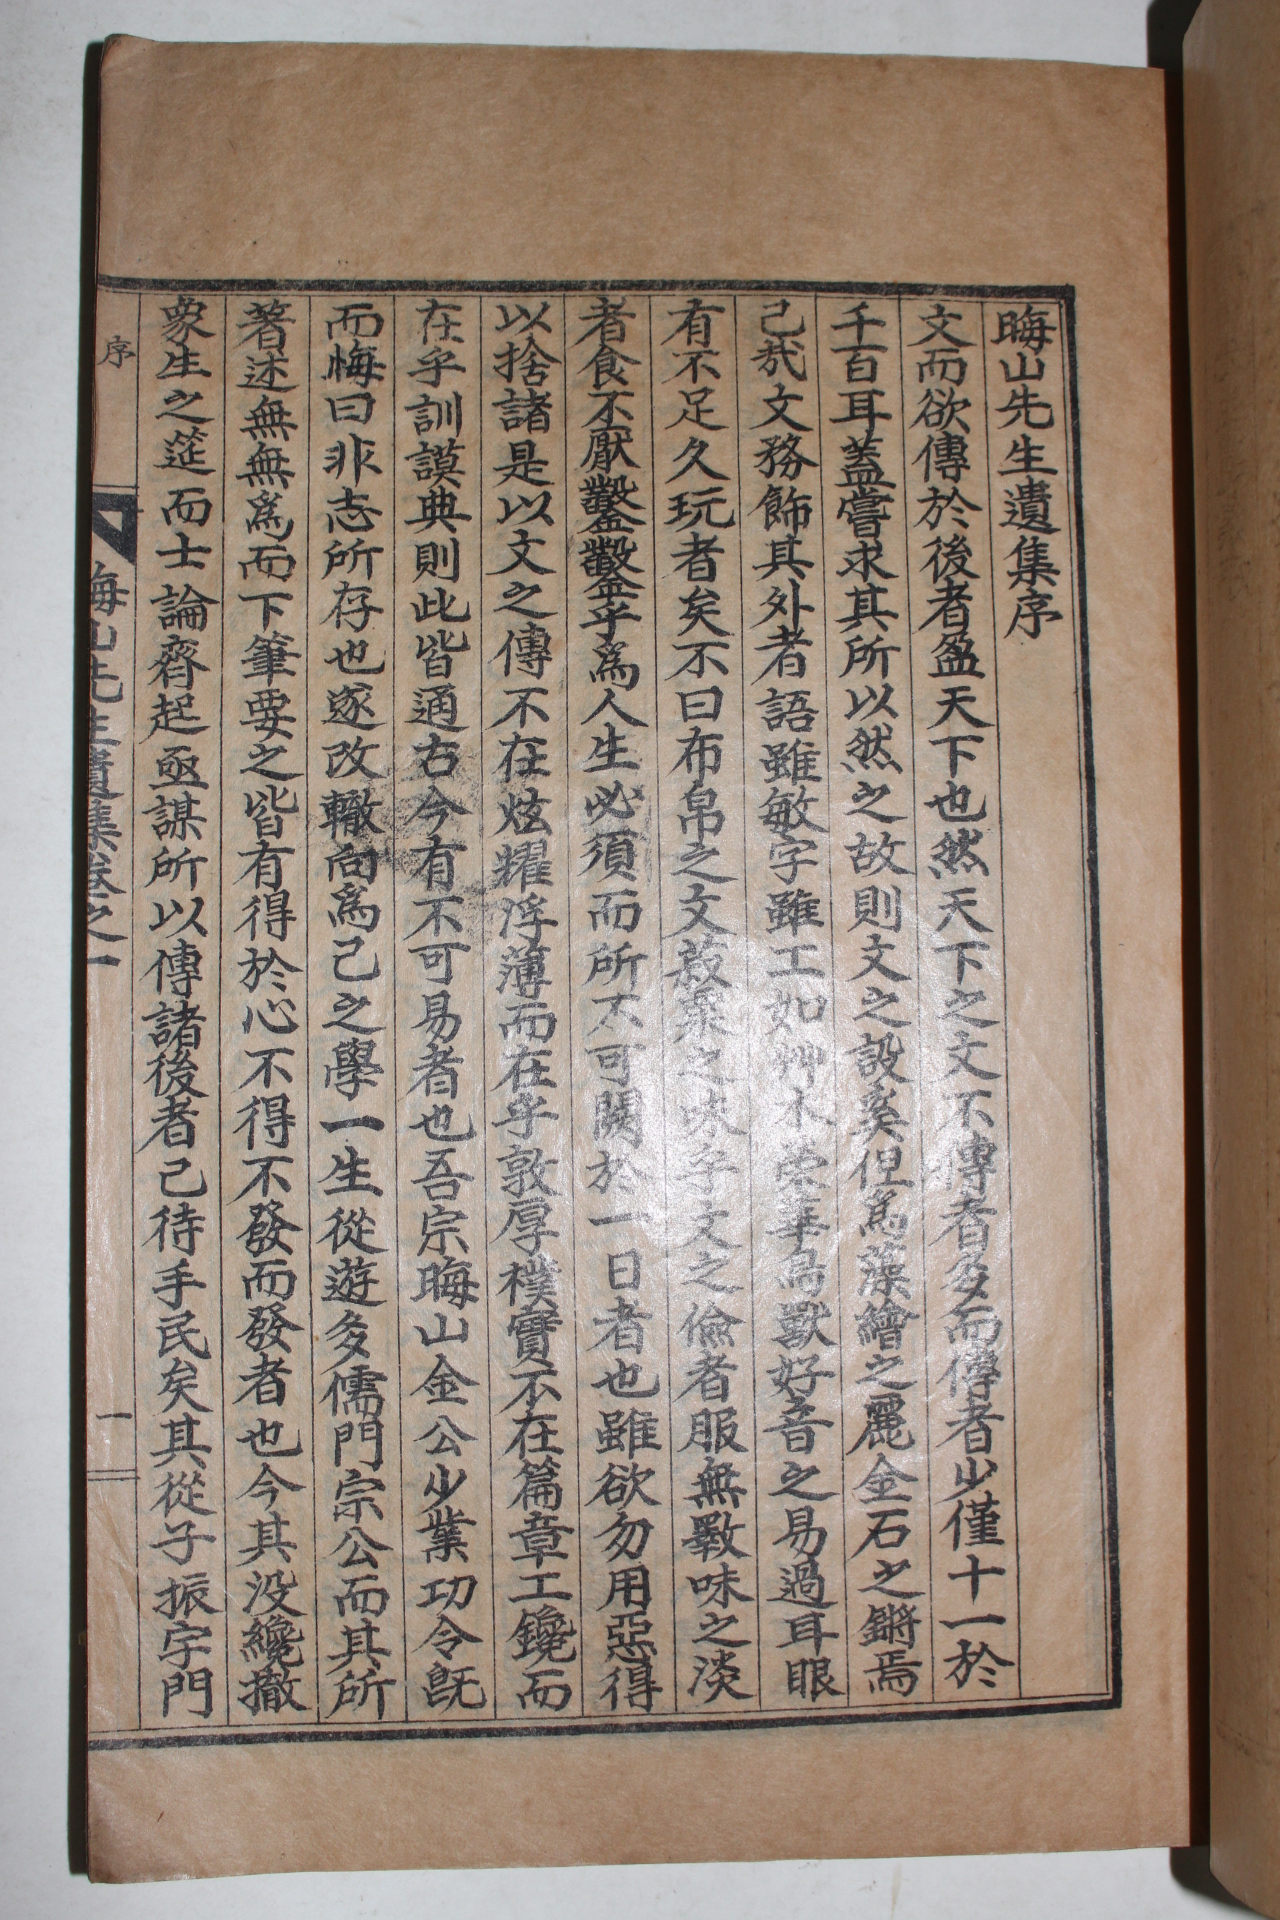 晦山先生遺集序
文而欲傳於後者盈天下也然天下之文不傳者多而傳者少僅十一於
千百耳蓋嘗求其所以然之故則文之設奚但爲藻繪之麗金石之鏘焉
已哉文務飾其外者語雖敏字雖工如艸木榮華鳥獸好音之易過耳眼
有不足久玩者矣不曰布帛之文菽粟之味乎文之儉者服無斁味之淡
者食不厭鑿鑿乎爲人生必須而所不可闕於一日者也雖欲勿用惡得
以捨諸是以文之傳不在炫耀浮薄而在乎敦厚樸實不在篇章工鑱而
在乎訓謨典則此皆通古今有不可易者也吾宗晦山金公少業功令旣
而悔曰非志所存也遂改轍向爲己之學一生從遊多儒門宗公而其所
著述無無爲而下筆要之皆有得於心不得不發而發者也今其沒纔撤
象生之筵而士論齊起亟謀所以傳諸後者已待手民矣其從子振宇門
序
晦山先生遺集卷之一
一